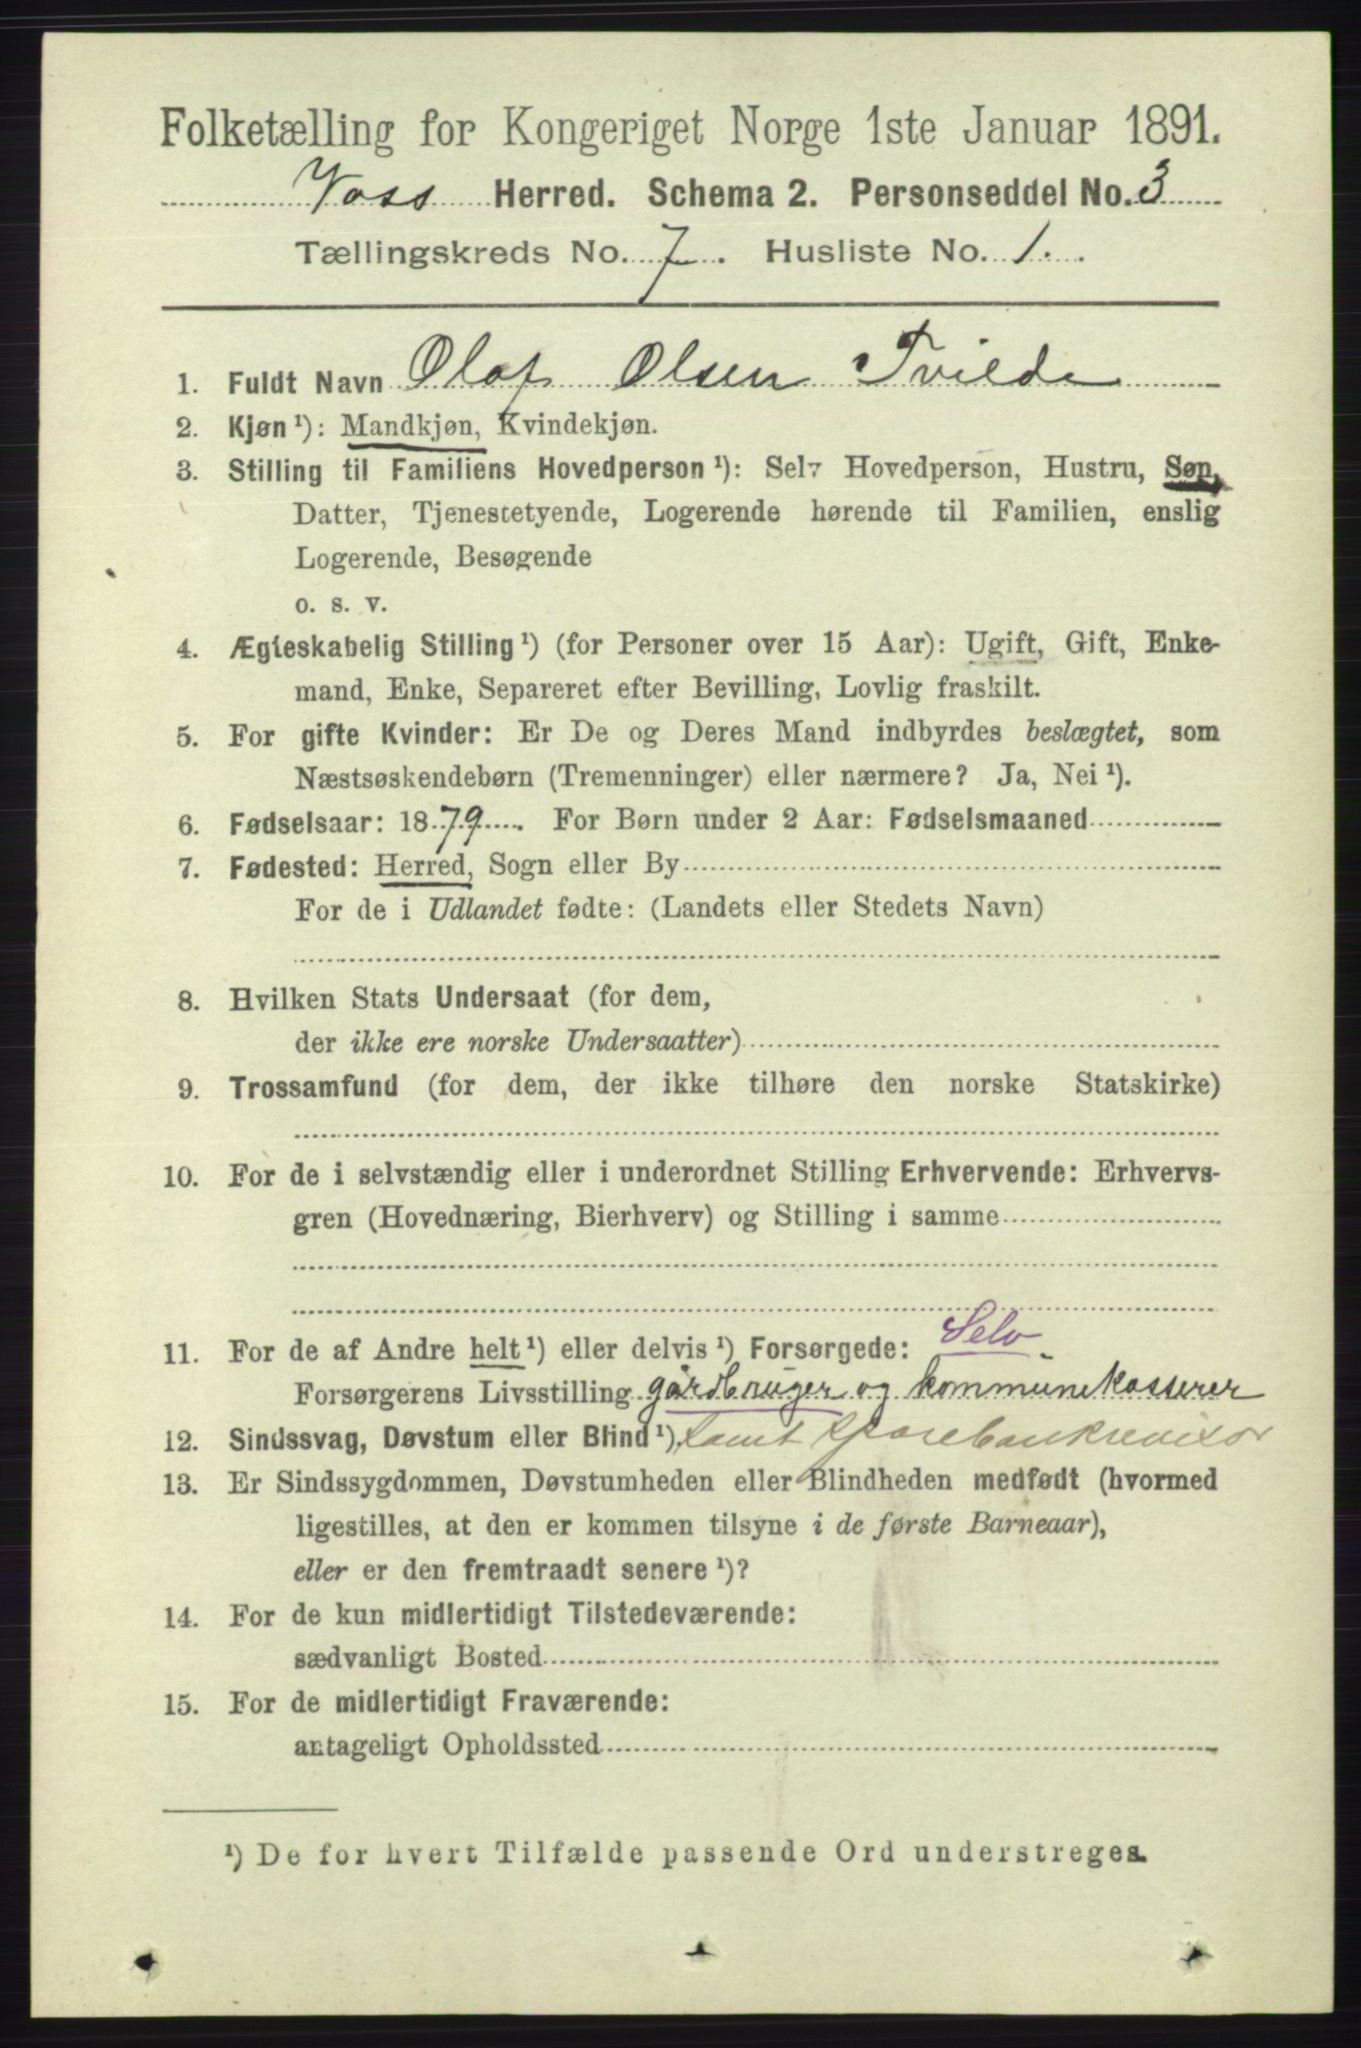 Folketælling for Kongeriget Norge 1ste Januar 1891.
Voss Herred. Schema 2. Personseddel No. 3
Tællingskreds No. 7. Husliste No. 1.
1. Fuldt Navn Olaf Olsen Tvilde
2. Kjøn ¹): Mandkjøn, Kvindekjøn.
3. Stilling til Familiens Hovedperson ¹): Selv Hovedperson, Hustru, Søn,
Datter, Tjenestetyende, Logerende hørende til Familien, enslig
Logerende, Besøgende
o. s. v.
4. Ægteskabelig Stilling ¹) (for Personer over 15 Aar): Ugift, Gift, Enke-
mand, Enke, Separeret efter Bevilling, Lovlig fraskilt.
5. For gifte Kvinder: Er De og Deres Mand indbyrdes beslægtet, som
Næstsøskendebørn (Tremenninger) eller nærmere? Ja, Nei ¹).
6. Fødselsaar: 1879. For Børn under 2 Aar: Fødselsmaaned
7. Fødested: Herred, Sogn eller By
For de i Udlandet fødte: (Landets eller Stedets Navn)
8. Hvilken Stats Undersaat (for dem,
der ikke ere norske Undersaatter)
9. Trossamfund (for dem, der ikke tilhøre den norske Statskirke)
10. For de i selvstændig eller i underordnet Stilling Erhvervende: Erhvervs-
gren (Hovednæring, Bierhverv) og Stilling i samme
11. For de af Andre helt ¹) eller delvis ¹) Forsørgede: Selv.
Forsørgerens Livsstilling gårdbruger og kommunekasserer
12. Sindssvag, Døvstum eller Blind ¹). samt sparebankrevisor
13. Er Sindssygdommen, Døvstumheden eller Blindheden medfødt (hvormed
ligestilles, at den er kommen tilsyne i de første Barneaar),
eller er den fremtraadt senere ¹)?
14. For de kun midlertidigt Tilstedeværende:
sædvanligt Bosted
15. For de midlertidigt Fraværende:
antageligt Opholdssted
¹) De for hvert Tilfælde passende Ord understreges.